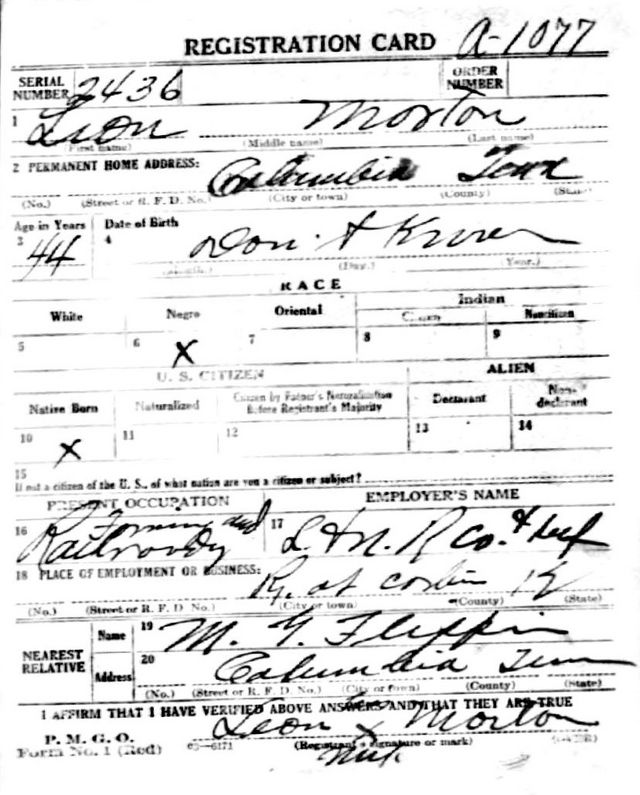 REGISTRATION CARD A-1077
SERIAL NUMBER 2436 ORDER NUMBER
1 Leon Morton
(First name) (Middle name) (Last name)
2 PERMANENT HOME ADDRESS: Columbia Tenn
(No.) (Street or R. F. D. No.) (City or town) (County) (State)
Age in Years Date of Birth
3 44 4 Don't Know
(Month.) (Day.) (Year.)
RACE
White Negro Oriental Indian
Citizen Noncitizen
5 6 X 7 8 9
U. S. CITIZEN ALIEN
Native Born Naturalized Citizen by Father's Naturalization Before Registrant's Majority Declarant Non-declarant
10 X 11 12 13 14
15
If not a citizen of the U. S., of what nation are you a citizen or subject?
PRESENT OCCUPATION EMPLOYER'S NAME
16 Farming and Railroady 17 L & N. R Co. & Self
18 PLACE OF EMPLOYMENT OR BUSINESS: R. at Corbin Ky
(No.) (Street or R. F. D. No.) (City or town) (County) (State)
NEAREST RELATIVE
Name 19 M. G. Flippin
Address 20 Columbia Tenn
(No.) (Street or R. F. D. No.) (City or town) (County) (State)
I AFFIRM THAT I HAVE VERIFIED ABOVE ANSWERS AND THAT THEY ARE TRUE
P. M. G. O. Leon X Morton
Form No. 1 (Red) 03-6171 (Registrant's signature or mark)